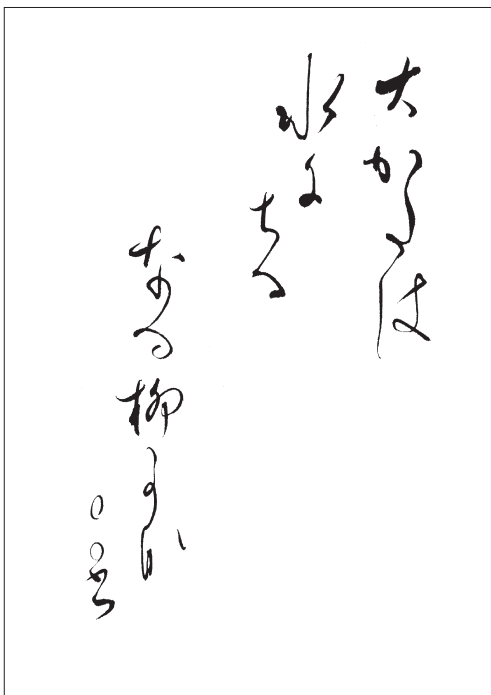 大かたは
水に
ちる
なる柳かな